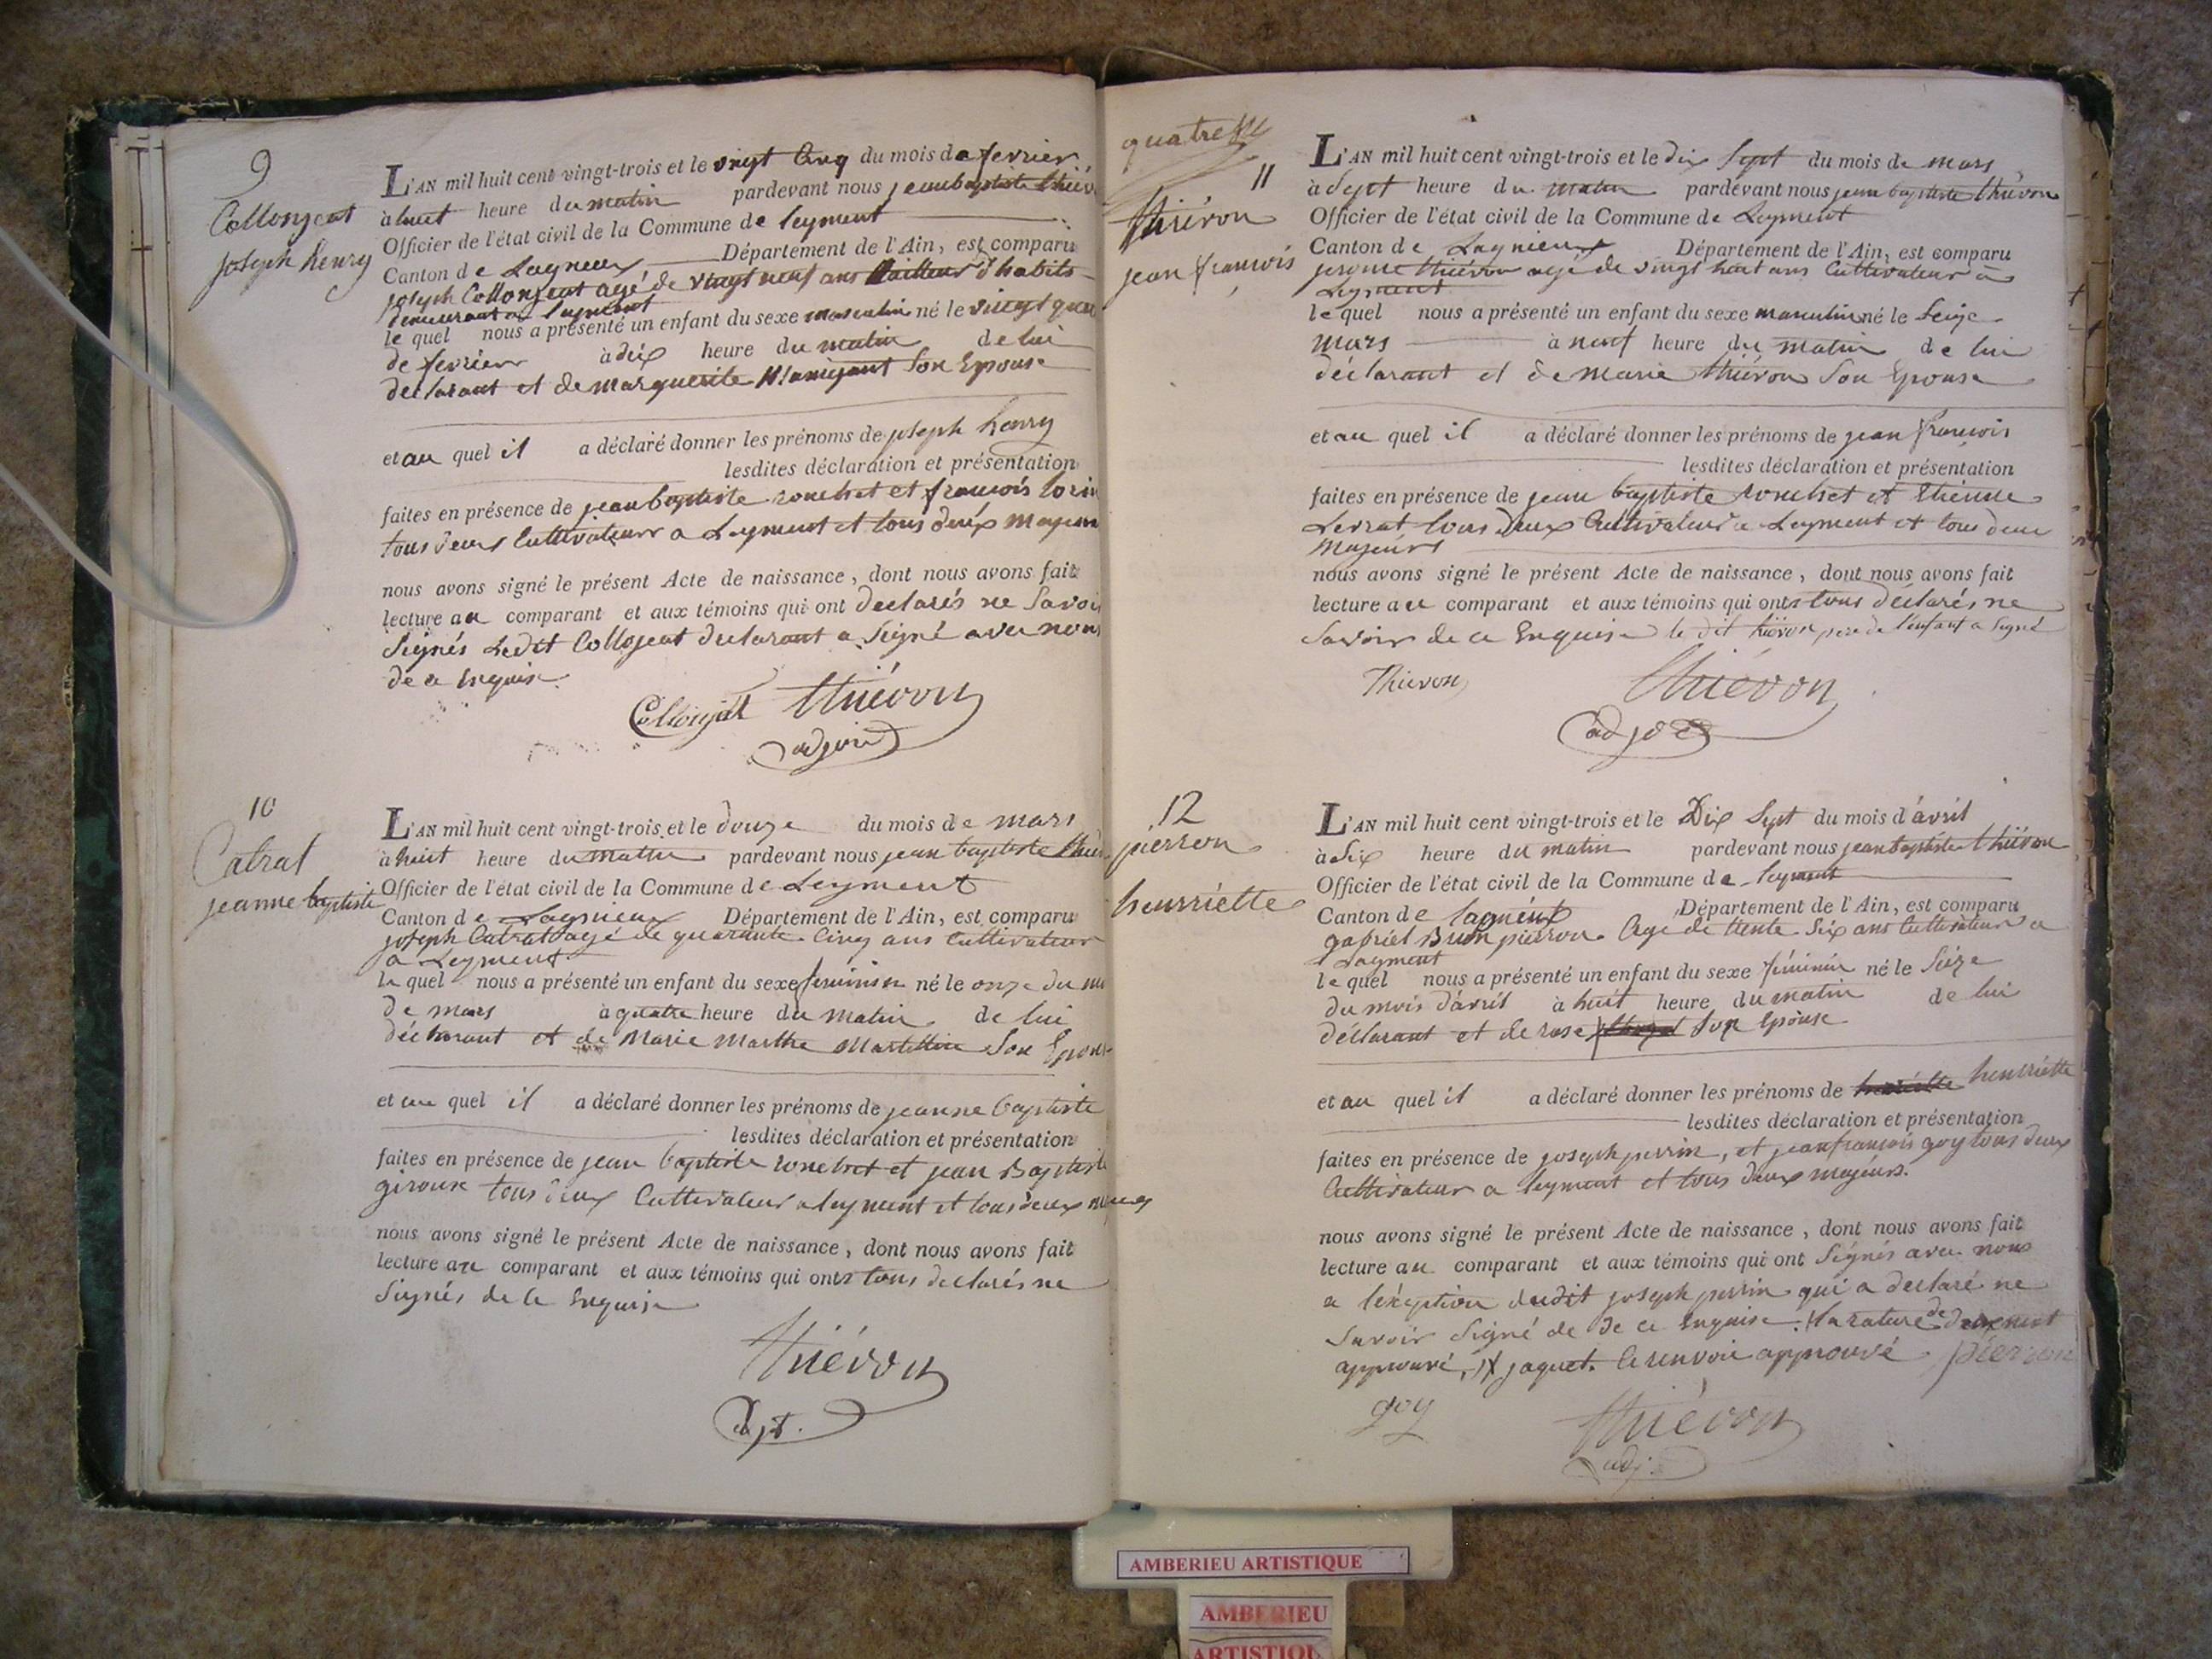 9
Collongeat
joseph henry
L'AN mil huit cent vingt-trois et le vingt Cinq du mois de fevrier
à huit heure du matin pardevant nous jean baptiste thiév
Officier de l'état civil de la Commune de leyment
Canton de Lagnieux Département de l'Ain, est comparu
joseph Collongeat agé de vingt neuf ans tailleur d'habits
demeurant a leyment
le quel nous a présenté un enfant du sexe masculin né le vingt
de fevrier à dix heure du matin de lui
declarant et de marguerite son Epouse
et au quel il a déclaré donner les prénoms de joseph henry
lesdites déclaration et présentation
faites en présence de jean baptiste ronchet et françois
tous deux Cultivateurs a Leyment et tous deux majeur
nous avons signé le présent Acte de naissance, dont nous avons fait
lecture au comparant et aux témoins qui ont declarés ne Savoir
Signés Ledit Collojeat declarant a Seigné avec nous
de ce Enquis
Collonjat thiévon
adjoint
10
Catrat
jeanne baptiste
L'AN mil huit cent vingt-trois et le douze du mois de mars
à huit heure du matin pardevant nous jean baptiste thiév
Officier de l'état civil de la Commune de Leyment
Canton de Lagnieux Département de l'Ain, est comparu
joseph Catrat agé de quarante Cinq ans Cultivateur
a Leyment
le quel nous a présenté un enfant du sexe feminin né le onze du
de mars à quatre heure du matin de lui
déclarant et de Marie Marthe Son Epouse
et au quel il a déclaré donner les prénoms de jeanne baptiste
lesdites déclaration et présentation
faites en présence de jean baptiste ronchet et jean Baptiste
giroux tous deux Cultivateur a leyment et tous deux
nous avons signé le présent Acte de naissance, dont nous avons fait
lecture au comparant et aux témoins qui ont tous declarés ne
Signés de Ce Enquise
thiévon
adjt.
11
thiévon
jean françois
L'AN mil huit cent vingt-trois et le dix Sept du mois de mars
à Sept heure du matin pardevant nous jean baptiste thiévon
Officier de l'état civil de la Commune de Leyment
Canton de Lagnieux Département de l'Ain, est comparu
jerome thiévon agé de vingt huit ans Cultivateur a
Leyment
le quel nous a présenté un enfant du sexe masculin né le Seize
mars à neuf heure du matin de lui
déclarant et de marie thiévon Son Epouse
et au quel il a déclaré donner les prénoms de jean françois
lesdites déclaration et présentation
faites en présence de jean baptiste ronchet et Etienne
tous deux Cultivateur a Leyment et tous deux
Majeurs
nous avons signé le présent Acte de naissance, dont nous avons fait
lecture au comparant et aux témoins qui ont tous déclarés ne
Savoir de ce Enquise le dit thiévon pere de l'enfant a Signé
Thievon thiévon
adj
12
pierron
henriette
L'AN mil huit cent vingt-trois et le Dix Sept du mois d'avril
à Six heure du matin pardevant nous jean baptiste thiévon
Officier de l'état civil de la Commune de leyment
Canton de lagnieux Département de l'Ain, est comparu
gabriel pierron Agé de trente Six ans Cultivateur a
Layment
le quel nous a présenté un enfant du sexe féminin né le Seize
du mois d'avril à huit heure du matin de lui
déclarant et de rose Son Epouse
et au quel il a déclaré donner les prénoms de henriette
lesdites déclaration et présentation
faites en présence de joseph perrin, et jean françois goy tous deux
Cultivateur a leyment et tous deux majeurs.
nous avons signé le présent Acte de naissance, dont nous avons fait
lecture au comparant et aux témoins qui ont Signés avec nous
a l'exeption dudit joseph perrin qui a déclaré ne
Savoir Signé de De ce Enquise. la rature de
approuvé, jaquet. le renvoi approuvé pierron
goy thiévon
adj.
AMBERIEU ARTISTIQUE
AMBERIEU
ARTISTIQU